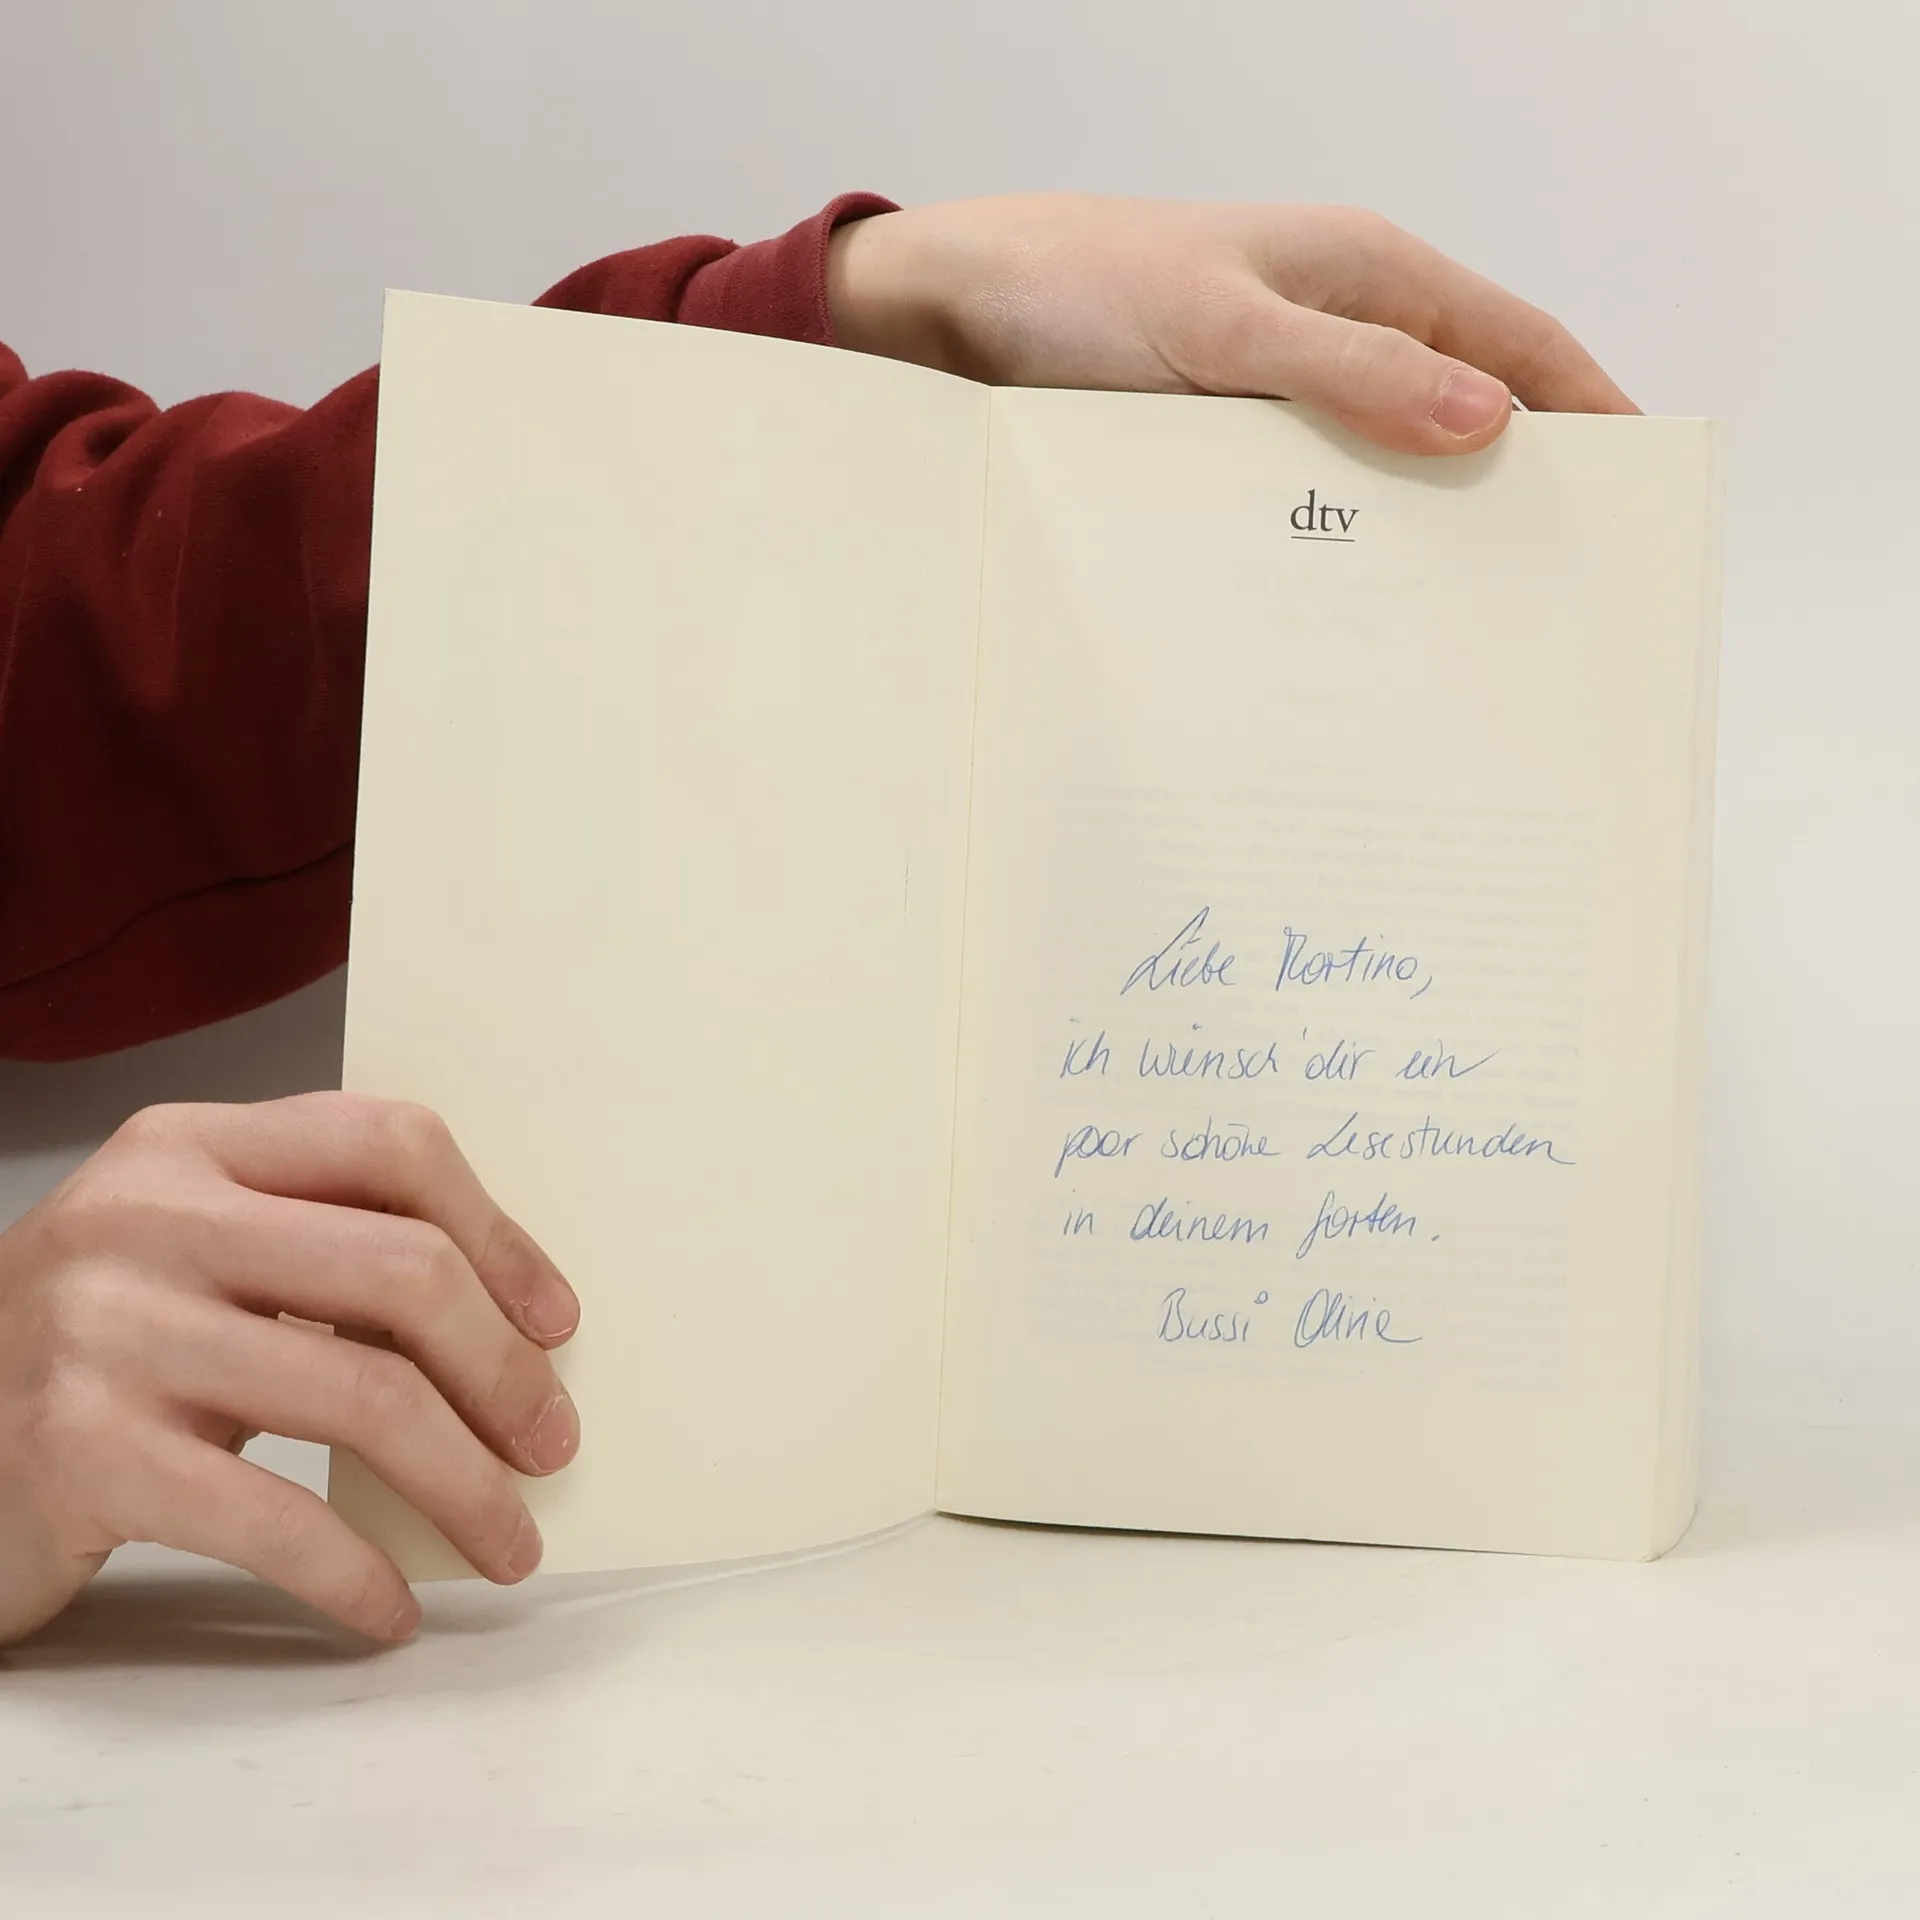 dtv
Liebe Martina,
ich wünsch' dir ein
paar schöne Lesestunden
in deinem Garten.
Bussi Olivie